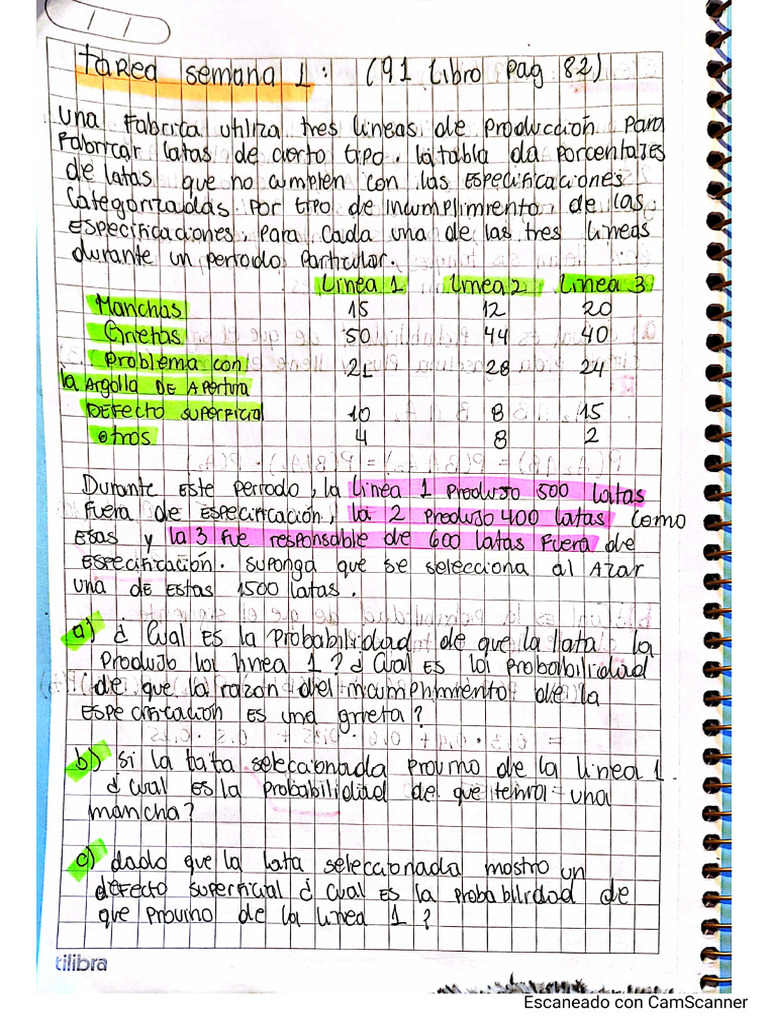 11
tarea semana 1: (91 libro pag 82)
una Fabrica utiliza tres lineas de producción para
Fabricar latas de cierto tipo. la tabla da porcentajes
de latas que no cumplen con las especificaciones
Categorizadas por tipo de incumplimiento de las
especificaciones, para cada una de las tres lineas
durante un periodo particular.
Linea 1 Linea 2 Linea 3
Manchas 15 12 20
Grietas 50 44 40
Problema con
la Argolla DE Apertura 21 28 24
DEFecto superficial 10 8 15
otros 4 8 2
Durante este periodo, la linea 1 produjo 500 latas
Fuera de especificación, la 2 produjo 400 latas como
esas y la 3 fue responsable de 600 latas fuera de
especificación. suponga que se selecciona al Azar
una de estas 1500 latas.
a) ¿ Cual es la probabilidad de que la lata la
produjo la linea 1? ¿ Cual es la probabilidad
de que la razon del incumplimiento de la
especificación es una grieta?
b) si la lata seleccionada provino de la linea 1.
¿ cual es la probabilidad de que tenia una
mancha?
c) dado que la lata seleccionada mostro un
defecto superficial ¿ cual es la probabilidad de
que provino de la linea 1 ?
tilibra
Escaneado con CamScanner